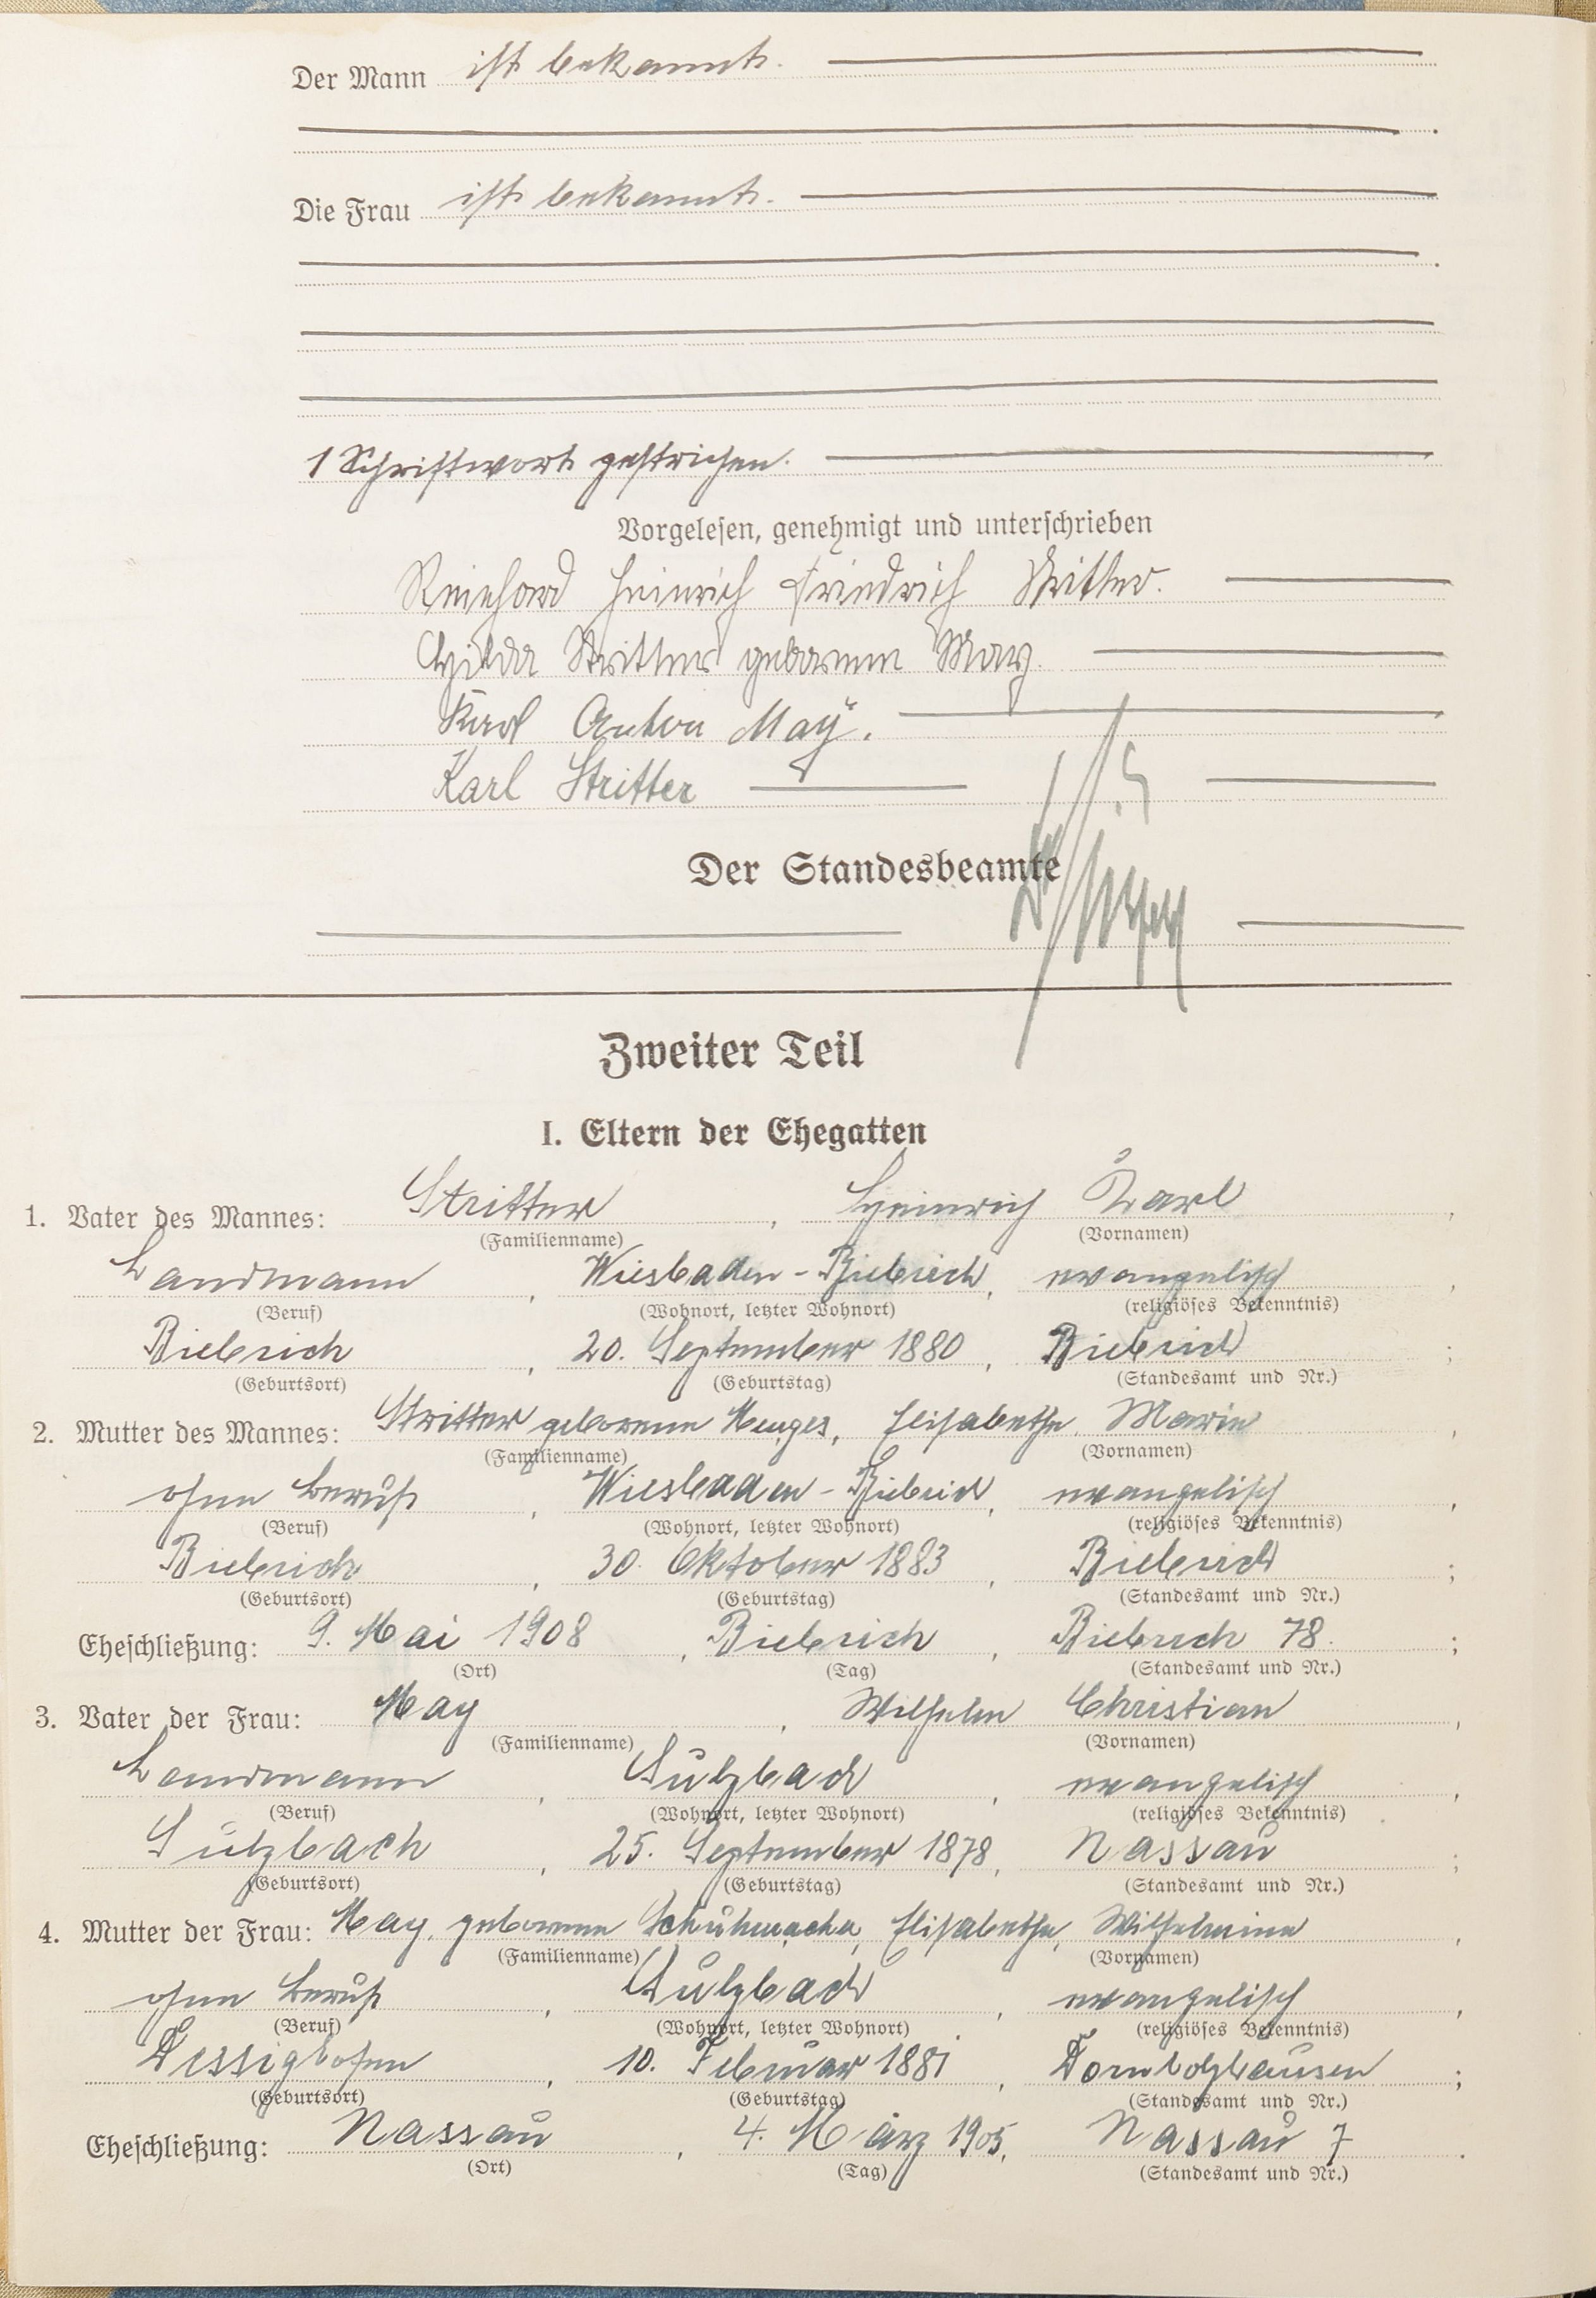 Der Mann ist bekannt.
Die Frau ist bekannt.
1 Schriftwort gestrichen.
Vorgelesen, genehmigt und unterschrieben
Reinhard Heinrich Friedrich Stritter.
Hilda Stritter geborene May.
Karl Anton May.
Karl Stritter
Der Standesbeamte
Zweiter Teil
I. Eltern der Ehegatten
1. Vater des Mannes: Stritter, Heinrich Karl,
(Familienname) (Vornamen)
Landmann, Wiesbaden-Biebrich, evangelisch,
(Beruf) (Wohnort, letzter Wohnort) (religiöses Bekenntnis)
Biebrich, 20. September 1880, Biebrich;
(Geburtsort) (Geburtstag) (Standesamt und Nr.)
2. Mutter des Mannes: Stritter geborene Menges, Elisabethe, Marie,
(Familienname) (Vornamen)
ohne Beruf, Wiesbaden-Biebrich, evangelisch,
(Beruf) (Wohnort, letzter Wohnort) (religiöses Bekenntnis)
Biebrich, 30. Oktober 1883, Biebrich;
(Geburtsort) (Geburtstag) (Standesamt und Nr.)
Eheschließung: 9. Mai 1908, Biebrich, Biebrich 78.;
(Ort) (Tag) (Standesamt und Nr.)
3. Vater der Frau: May, Wilhelm Christian,
(Familienname) (Vornamen)
Landmann, Sulzbach, evangelisch,
(Beruf) (Wohnort, letzter Wohnort) (religiöses Bekenntnis)
Sulzbach, 25. September 1878, Nassau;
(Geburtsort) (Geburtstag) (Standesamt und Nr.)
4. Mutter der Frau: May, geborene Schuhmacher, Elisabethe, Wilhelmine,
(Familienname) (Vornamen)
ohne Beruf, Sulzbach, evangelisch,
(Beruf) (Wohnort, letzter Wohnort) (religiöses Bekenntnis)
Dessighofen, 10. Februar 1881, Dornholzhausen;
(Geburtsort) (Geburtstag) (Standesamt und Nr.)
Eheschließung: Nassau, 4. März 1905, Nassau 7.
(Ort) (Tag) (Standesamt und Nr.)